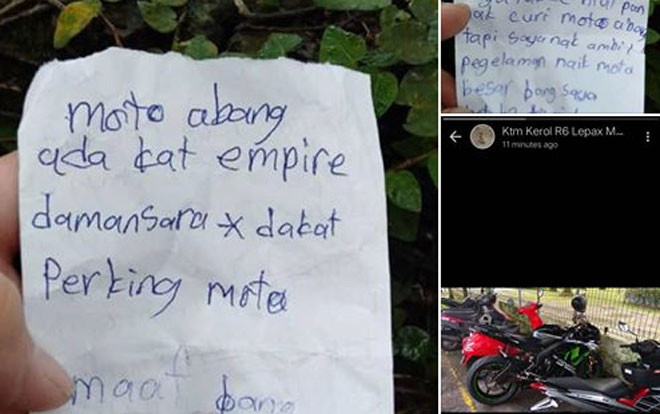 moto abang
ada kat empire
damansara * dakat
Perking moto
maaf bang
nak curi moto abang
tapi saya nak ambil
pegelaman naik moto
besar bang saya
Ktm Kerol R6 Lepax M...
11 minutes ago